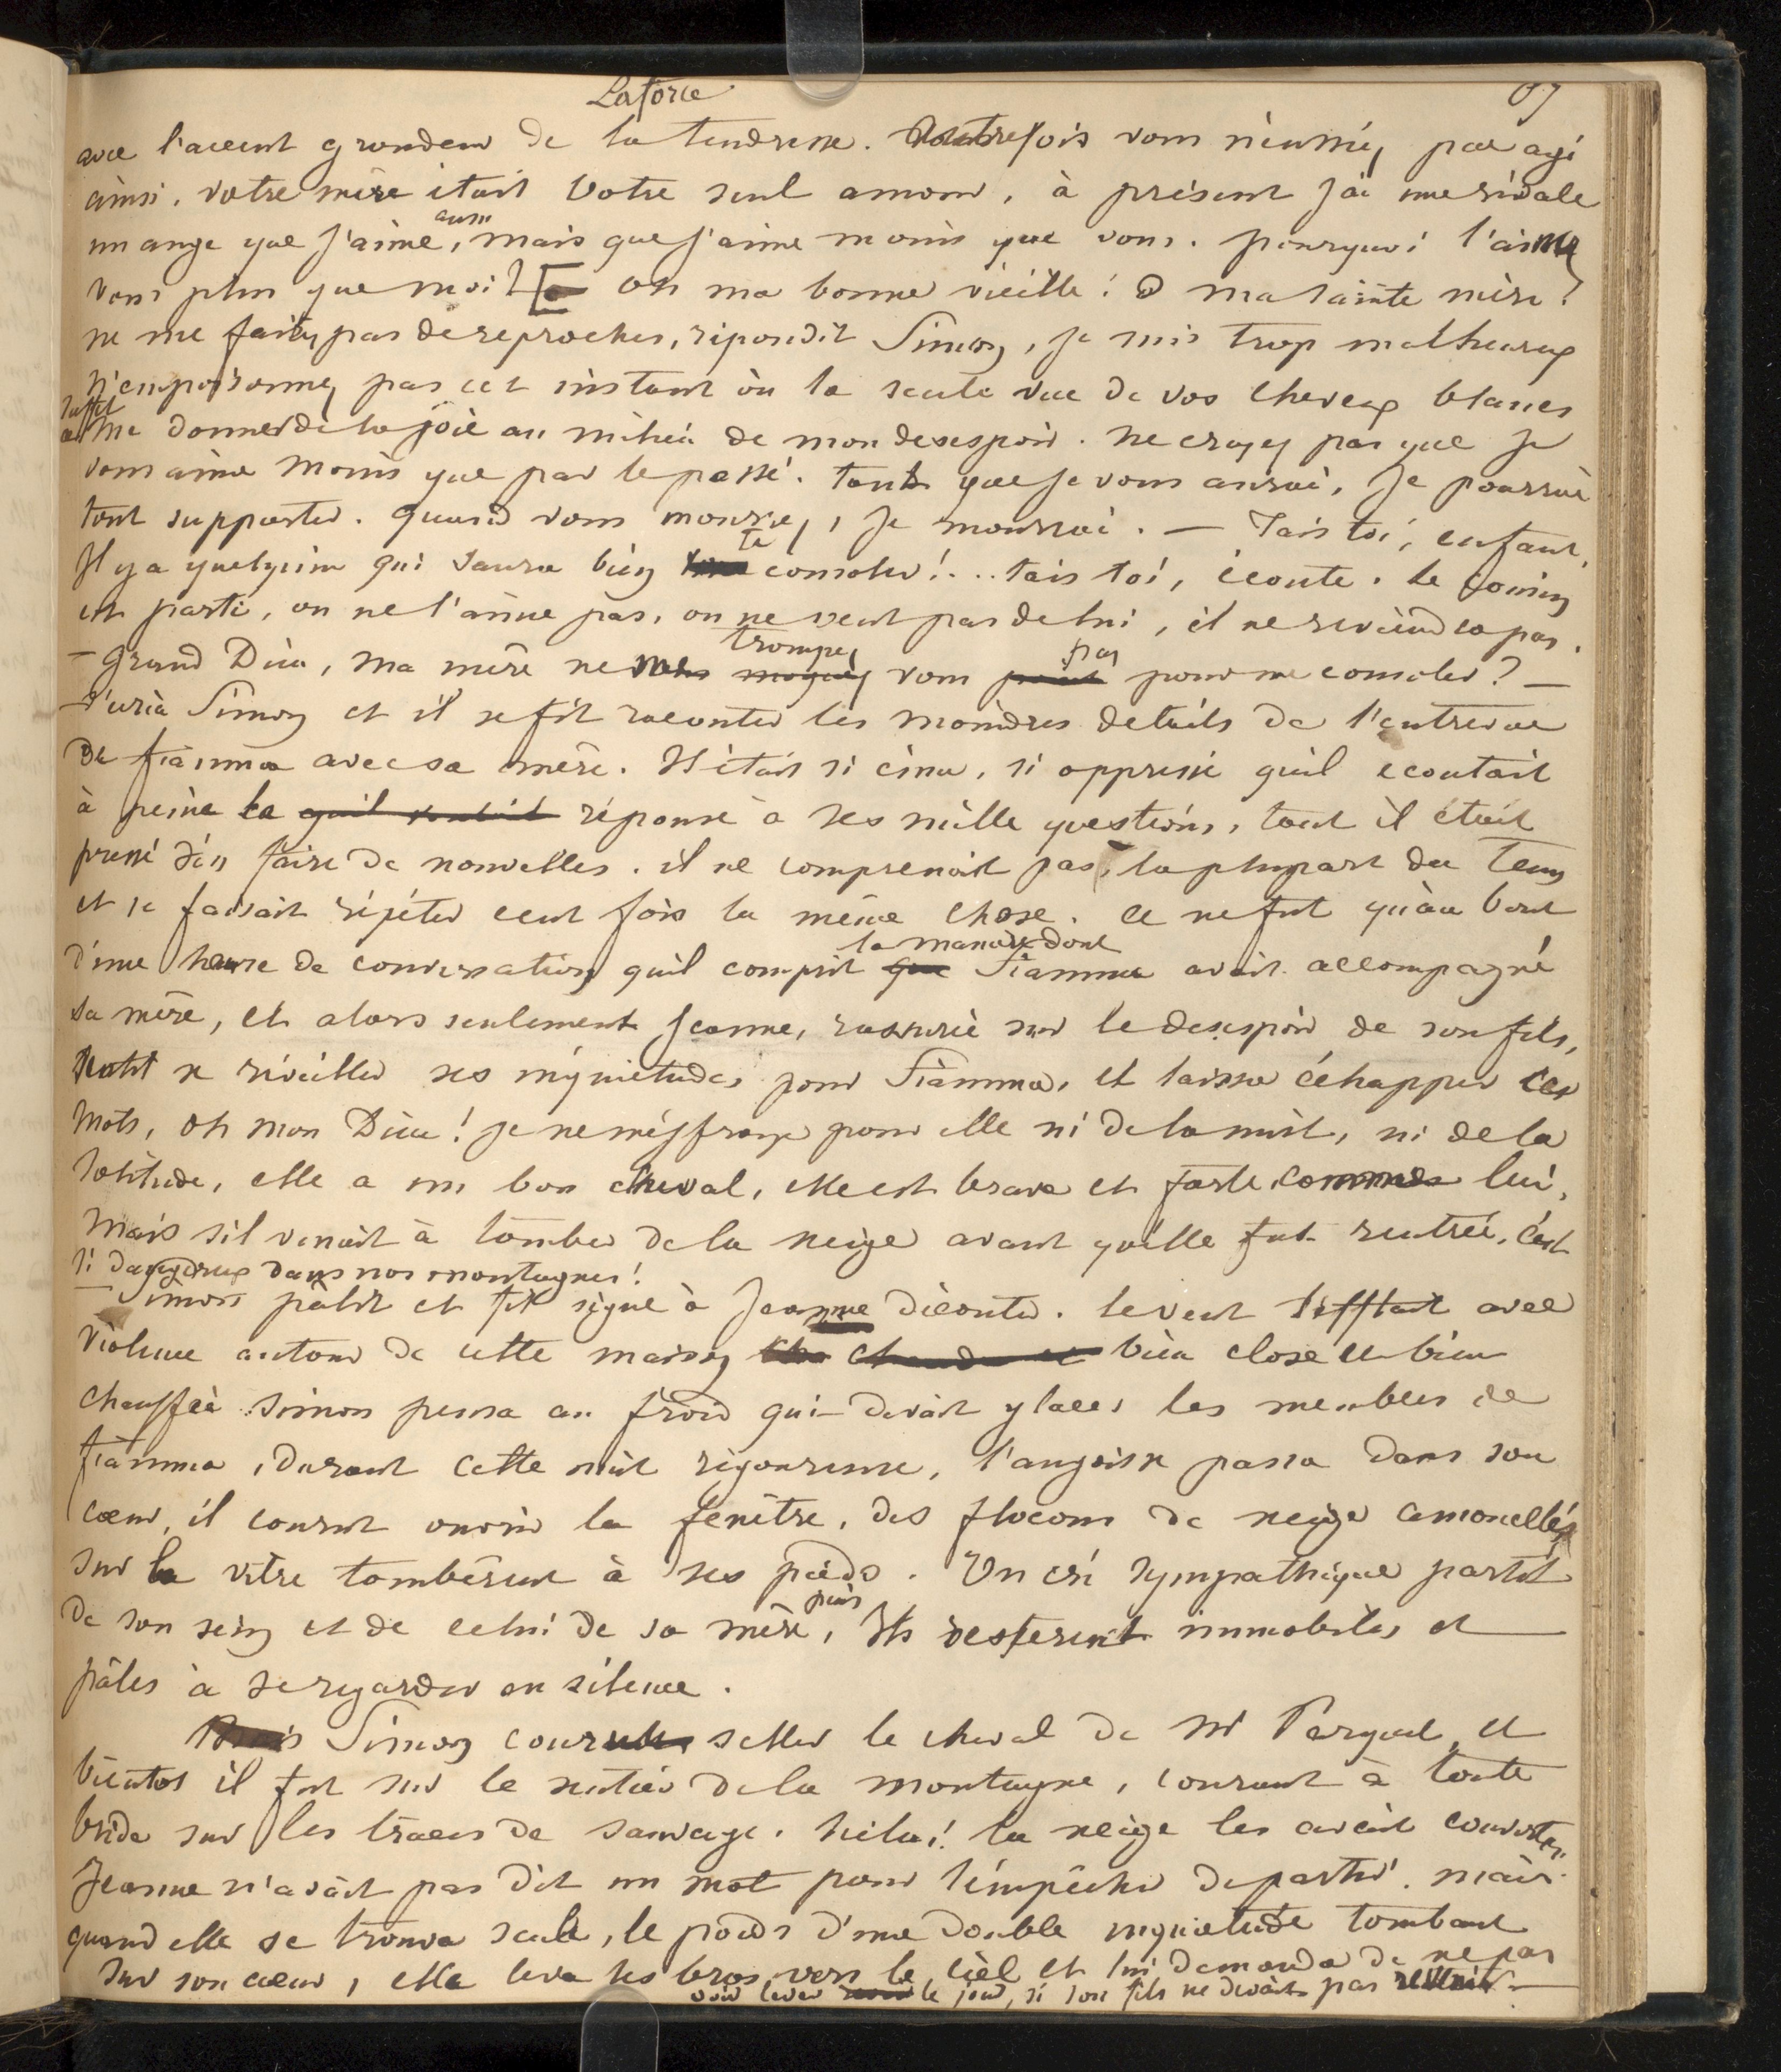 Laforce
67
avec l'accent grondeur de la tendresse. Autrefois vous n'eussiez pas agi
ainsi. votre mère était votre seul amour, à présent j'ai une rivale
un ange que j'aime aussi, mais que j'aime moins que vous. pourquoi l'aimez
vous plus que moi? [— oh ma bonne vieille! O ma sainte mère!
ne me faites pas de reproches, répondit Simon, je suis trop malheureux
n'empoisonnez pas cet instant où la seule vue de vos cheveux blancs
suffit à me donner de la joie au milieu de mon desespoir. ne croyez pas que je
vous aime moins que par le passé. tant que je vous aurai, je pourrai
tout supporter. quand vous mourrez, je mourrai. — Tais toi, enfant,
Il y a quelqu'un qui saura bien te consoler!.. tais toi, écoute. le cousin
est parti, on ne l'aime pas, on ne veut pas de lui, il ne reviendra pas.
— Grand Dieu, ma mère ne me trompez vous pas pour me consoler? —
s'ecria Simon et il se fit raconter les moindres details de l'entrevue
de fiamma avec sa mère. Il était si ému, si oppressé qu'il ecoutait
à peine la qu'il voulait réponse à ses mille questions, tant il était
pressé d'en faire de nouvelles. il ne comprenait pas, la plupart du tems
et se faisait répéter cent fois la même chose. Ce ne fut qu'au bout
d'une heure de conversation qu'il comprit que la manière dont Fiamma avait accompagné
sa mère, et alors seulement Jeanne, rassurée sur le desespoir de son fils,
sentit se réveiller ses inquietudes pour Fiamma, et laissa échapper ces
mots, oh mon Dieu! je ne m'effraye pour elle ni de la nuit, ni de la
solitude, elle a un bon cheval, elle est brave et forte comme lui,
mais s'il venait à tomber de la neige avant qu'elle fut rentrée, c'est
si dangereux dans nos montagnes!
— Simon pâlit et fit signe à Jeanne d'écouter. le vent sifflait avec
violence autour de cette maison chaude et bien close et bien
chauffée Simon pensa au froid qui devait glacer les membres de
fiamma, durant cette nuit rigoureuse, l'angoisse passa dans son
cœur, il courut ouvrir la fenêtre, des flocons de neige amoncellés
sur la vitre tombèrent à ses pieds. Un cri sympathique partit
de son sein et de celui de sa mère, puis Ils resterent immobiles et
pâles à se regarder en silence.
Puis Simon courut seller le cheval de Mr Parquet, et
bientôt il fut sur le sentier de la montagne, courant à toute
bride sur les traces de sauvage. hélas! la neige les avait couvertes.
Jeanne n'avait pas dit un mot pour l'empêcher de partir. mais
quand elle se trouva seule, le poids d'une double inquietude tombant
sur son cœur, elle leva ses bras vers le ciel et lui demanda de ne pas
voir lever le jour, si son fils ne devait pas revenir —